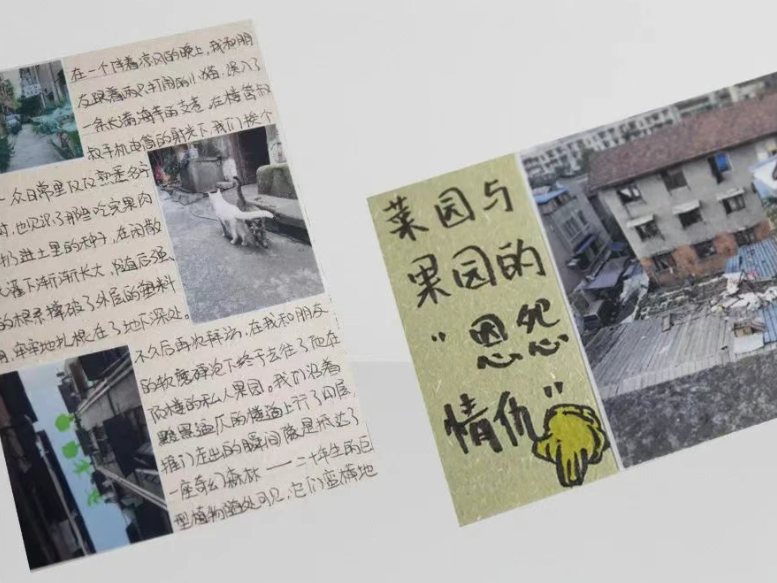 在一个伴着凉风的晚上，我和朋
友跟着两只打闹的小猫，误入了
一条长满海芋的支巷。在楼管叔
叔手机电筒的射光下，我们挨个
众日常里仅仅熟悉名字
时，也见识了那些吃完果肉
扔进土里的种子，在闲散
灌下渐渐长大，随后强
的根系撑破了外层的塑料
牢牢地扎根在了地下深处。
不久后再次拜访，在我和朋友
的软磨硬泡下终于去往了他在
顶楼的私人果园。我们沿着
黝黑逼仄的楼道上行了四层
推门走出的瞬间像是抵达了
一座奇幻森林——二十年生的巨
型植物随处可见，它们蛮横地
菜园与
果园的
“恩怨
情仇”